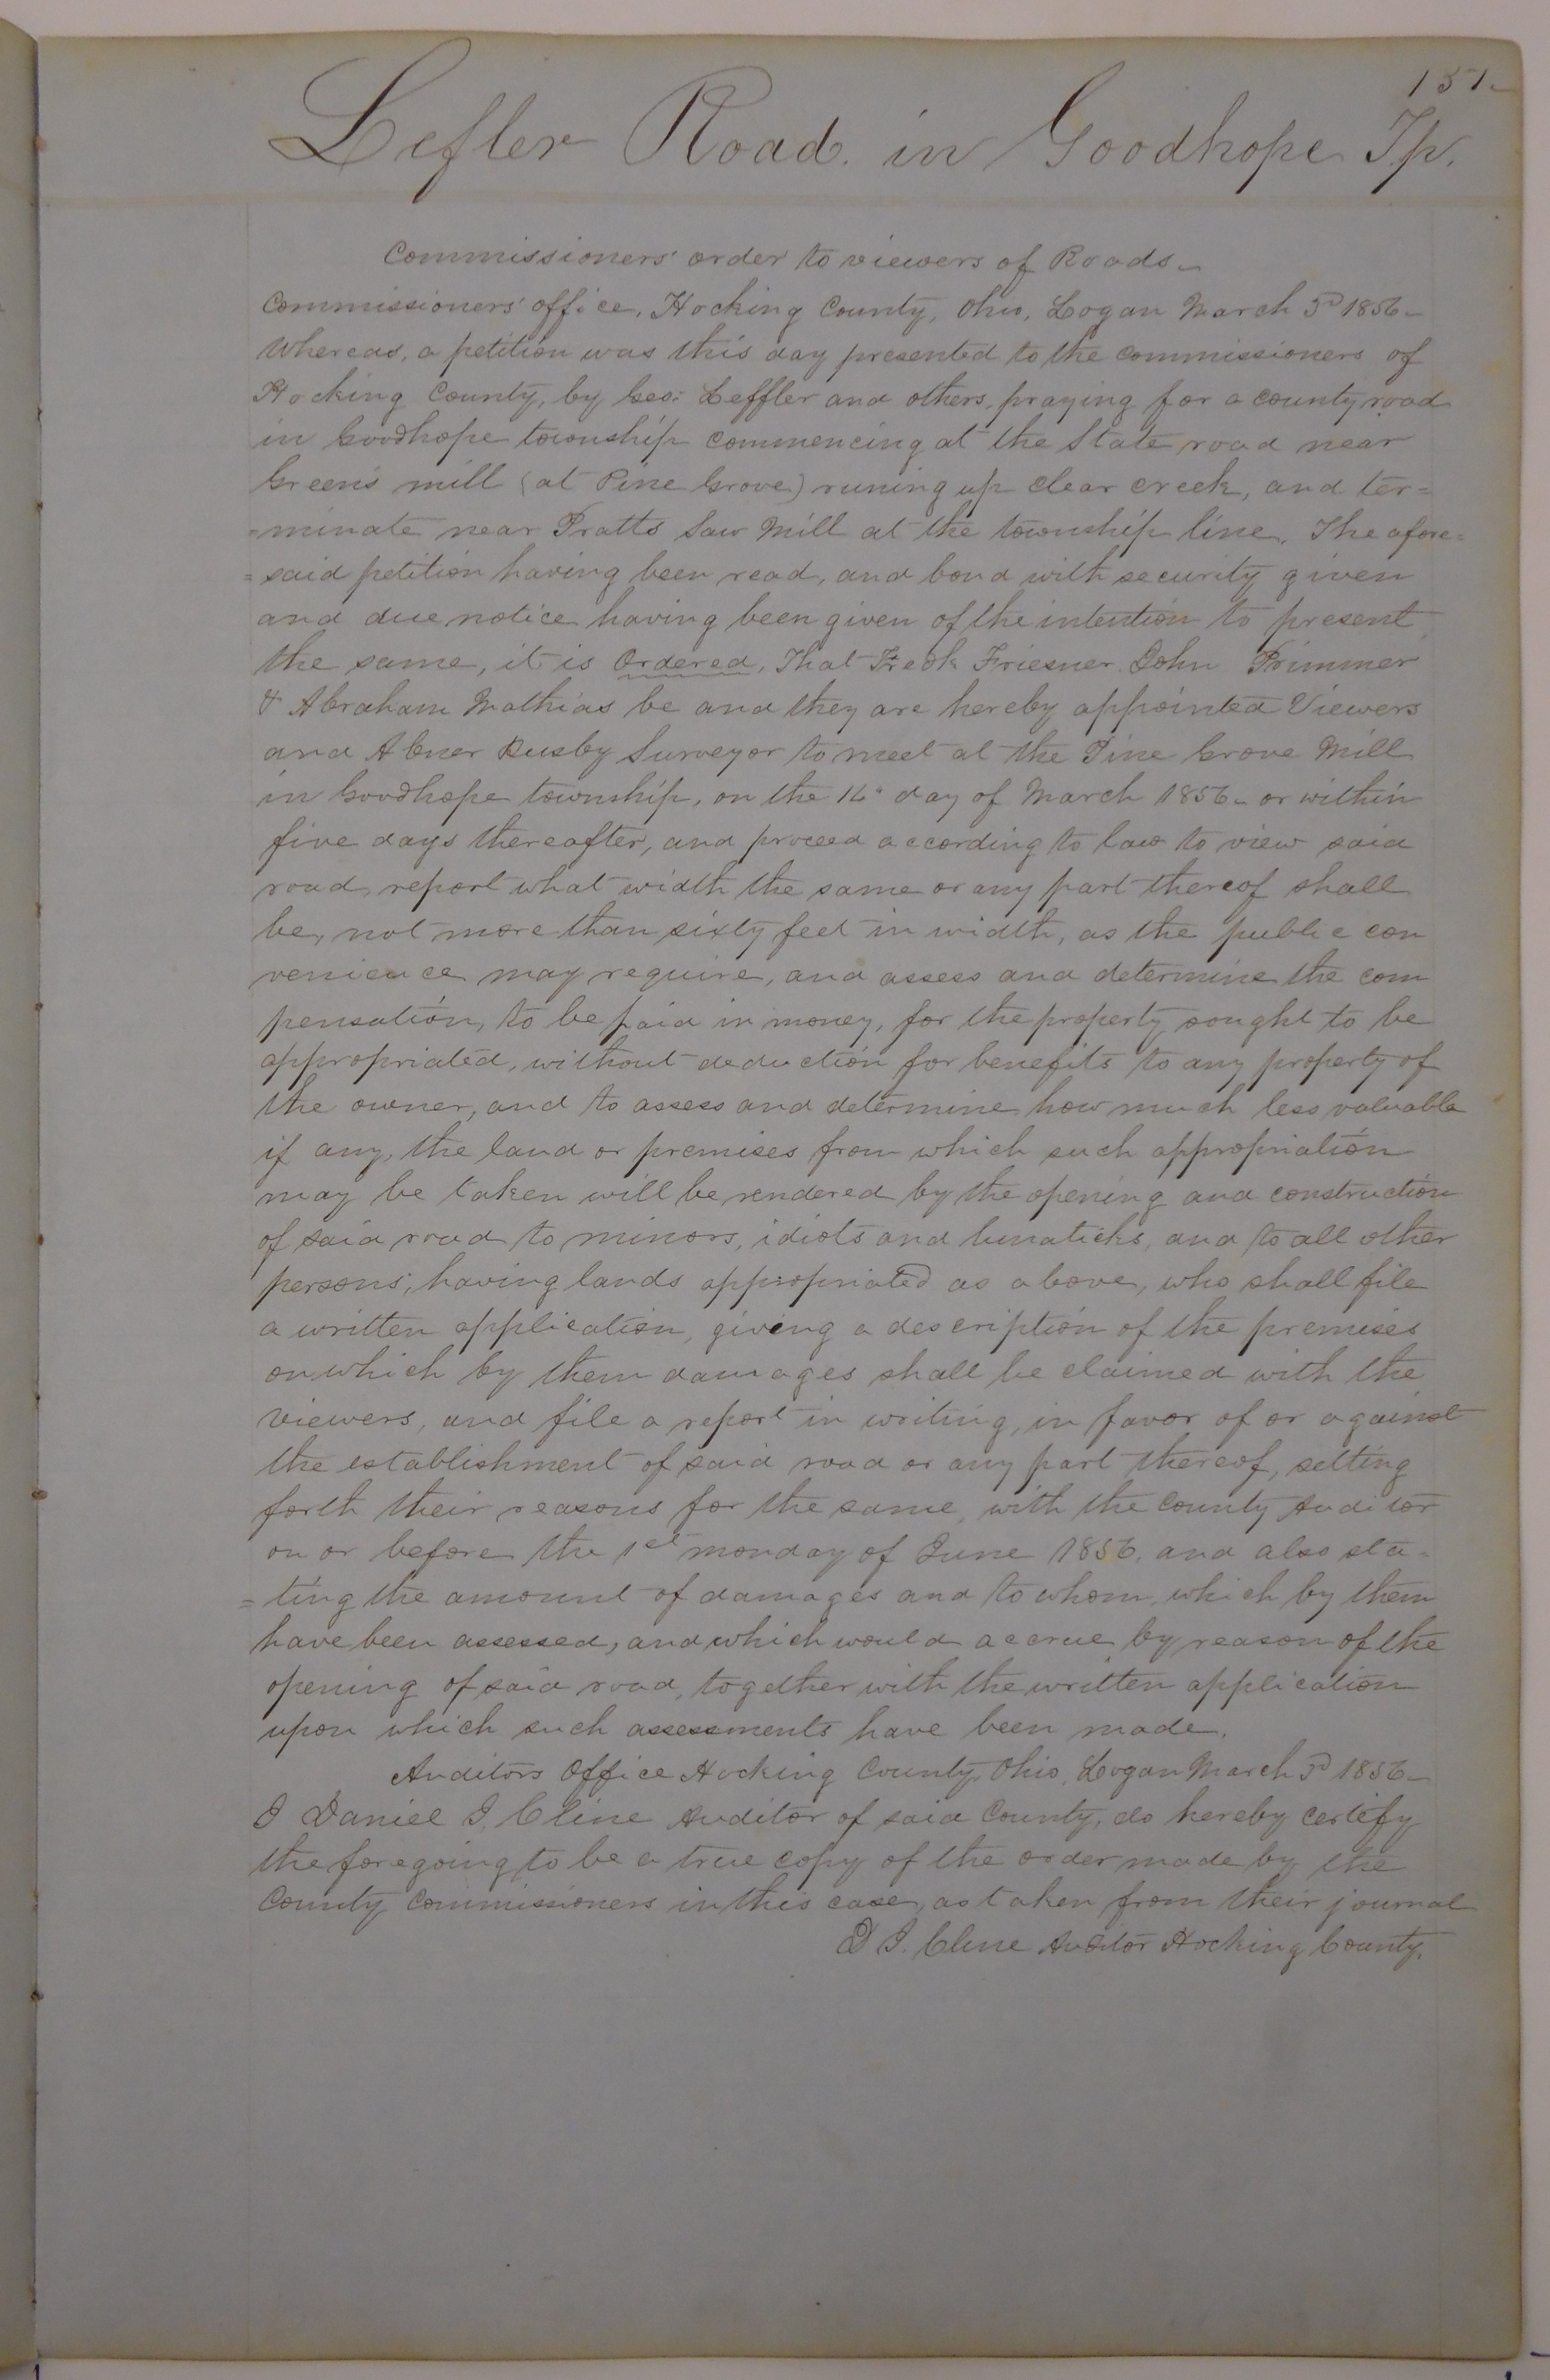 151.
Lefler Road. in Goodhope Tp.
Commissioners' order to viewers of Roads.
Commissioners' office, Hocking County, Ohio, Logan March 3d 1856.
Whereas, a petition was this day presented to the commissioners of
Hocking County, by Geo: Leffler and others, praying for a county road
in Goodhope township commencing at the State road near
Green's mill (at Pine Grove) runing up clear creek, and ter=
=minate near Pratts Saw Mill at the township line. The afore=
=said petition having been read, and bond with security given
and due notice having been given of the intention to present
the same, it is Ordered, That Fredk Friesner. John Primmer
& Abraham Mathias be and they are hereby appointed Viewers
and Abner Busby Surveyor to meet at the Pine Grove Mill
in Goodhope township, on the day of March 1856. or within
five days thereafter, and proceed according to law to view said
road, report what width the same or any part thereof shall
be, not more than sixty feet in width, as the public con
venience may require, and assess and determine the com
pensation, to be paid in money, for the property sought to be
appropriated, without deduction for benefits to any property of
the owner, and to assess and determine how much less valuable
if any, the land or premises from which such appropriation
may be taken will be rendered by the opening and construction
of said road to minors, idiots and lunaticks, and to all other
persons, having lands appropriated as above, who shall file
a written application, giving a description of the premises
on which by them damages shall be claimed with the
viewers, and file a report in writing, in favor of or against
the establishment of said road or any part thereof, setting
forth their reasons for the same, with the County Auditor
on or before the 1st monday of June 1856, and also sta=
=ting the amount of damages and to whom, which by them
have been assessed, and which would accrue by reason of the
opening of said road, together with the written application
upon which such assessments have been made.
Auditors Office Hocking County, Ohio, Logan March 3d 1856.
I Daniel I. Cline Auditor of said County, do hereby certify
the foregoing to be a true copy of the order made by the
County Commissioners in this case, as taken from their journal
D I. Cline Auditor Hocking County.